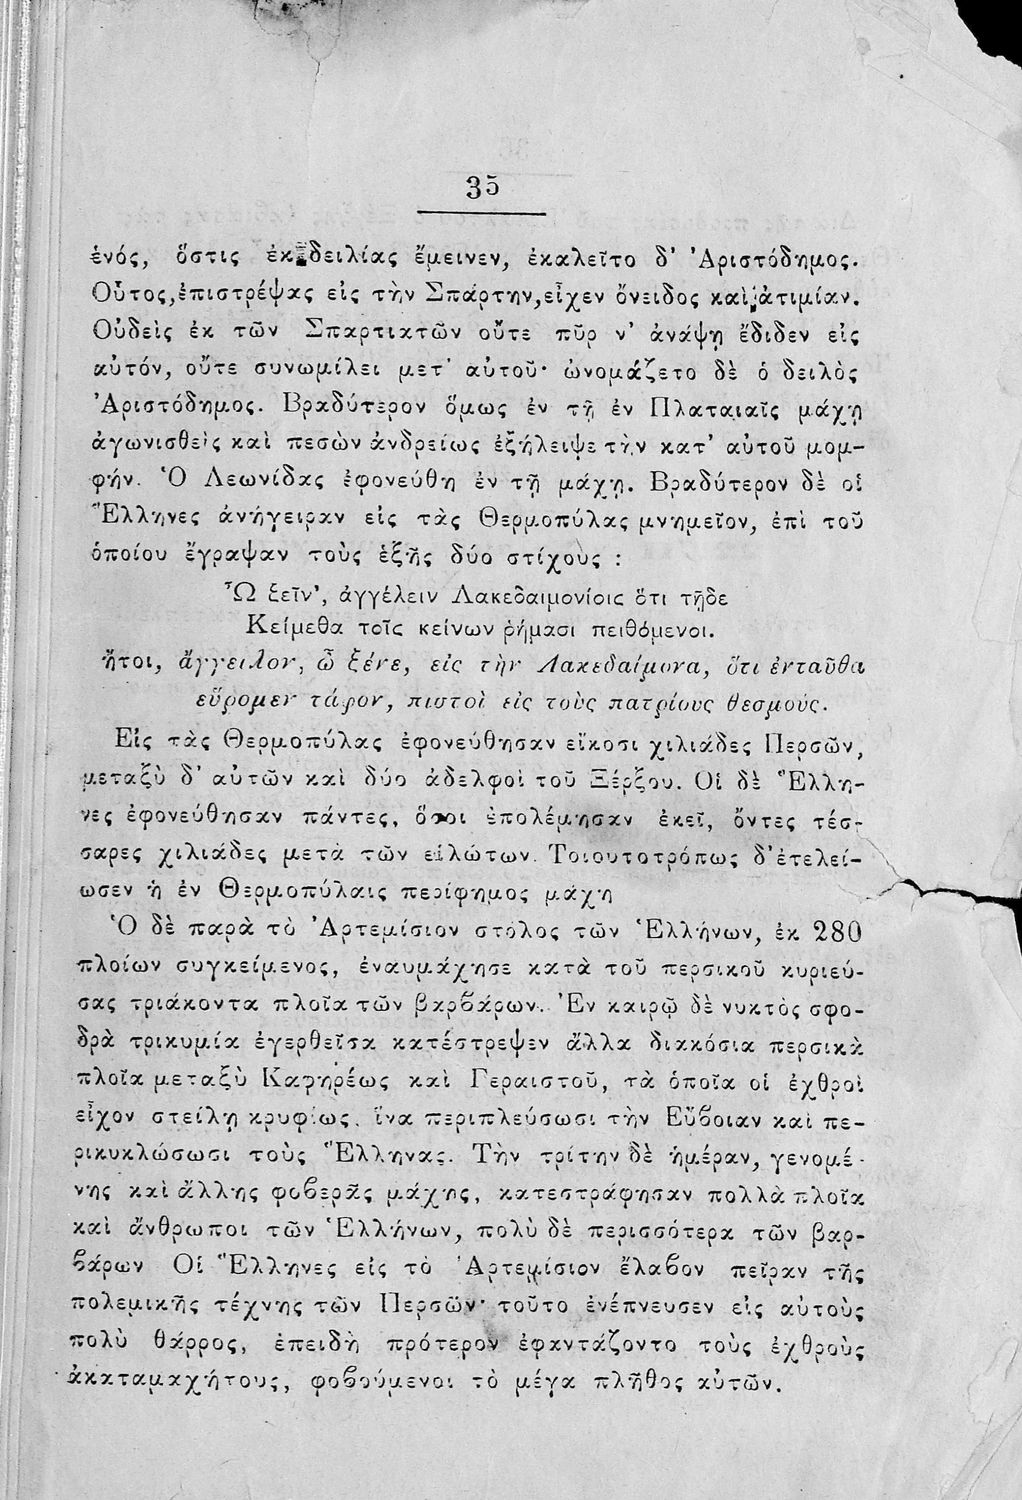 35
ἑνός, ὅστις ἐκ δειλίας ἔμεινεν, ἐκαλεῖτο δ' Ἀριστόδημος.
Οὗτος,ἐπιστρέψας εἰς τὴν Σπάρτην,εἶχεν ὄνειδος καὶ ἀτιμίαν.
Οὐδεὶς ἐκ τῶν Σπαρτιατῶν οὔτε πῦρ ν' ἀνάψῃ ἔδιδεν εἰς
αὐτόν, οὔτε συνωμίλει μετ' αὐτοῦ· ὠνομάζετο δὲ ὁ δειλὸς
Ἀριστόδημος. Βραδύτερον ὅμως ἐν τῇ ἐν Πλαταιαῖς μάχῃ
ἀγωνισθεὶς καὶ πεσὼν ἀνδρείως ἐξήλειψε τὴν κατ' αὐτοῦ μομ-
φήν. Ὁ Λεωνίδας ἐφονεύθη ἐν τῇ μάχῃ. Βραδύτερον δὲ οἱ
Ἕλληνες ἀνήγειραν εἰς τὰς Θερμοπύλας μνημεῖον, ἐπὶ τοῦ
ὁποίου ἔγραψαν τοὺς ἑξῆς δύο στίχους :
Ὦ ξεῖν', ἀγγέλειν Λακεδαιμονίοις ὅτι τῇδε
Κείμεθα τοῖς κείνων ῥήμασι πειθόμενοι.
ἤτοι, ἄγγειλον, ὦ ξένε, εἰς τὴν Λακεδαίμονα, ὅτι ἐνταῦθα
εὕρομεν τάφον, πιστοὶ εἰς τοὺς πατρίους θεσμούς.
Εἰς τὰς Θερμοπύλας ἐφονεύθησαν εἴκοσι χιλιάδες Περσῶν,
μεταξὺ δ' αὐτῶν καὶ δύο ἀδελφοὶ τοῦ Ξέρξου. Οἱ δὲ Ἕλλη-
νες ἐφονεύθησαν πάντες, ὅσοι ἐπολέμησαν ἐκεῖ, ὄντες τέσ-
σαρες χιλιάδες μετὰ τῶν εἱλώτων. Τοιουτοτρόπως δ'ἐτελεί-
ωσεν ἡ ἐν Θερμοπύλαις περίφημος μάχη
Ὁ δὲ παρὰ τὸ Ἀρτεμίσιον στόλος τῶν Ἑλλήνων, ἐκ 280
πλοίων συγκείμενος, ἐναυμάχησε κατὰ τοῦ περσικοῦ κυριεύ-
σας τριάκοντα πλοῖα τῶν βαρβάρων. Ἐν καιρῷ δὲ νυκτὸς σφο-
δρὰ τρικυμία ἐγερθεῖσα κατέστρεψεν ἄλλα διακόσια περσικὰ
πλοῖα μεταξὺ Καφηρέως καὶ Γεραιστοῦ, τὰ ὁποῖα οἱ ἐχθροὶ
εἶχον στείλῃ κρυφίως, ἵνα περιπλεύσωσι τὴν Εὔβοιαν καὶ πε-
ρικυκλώσωσι τοὺς Ἕλληνας. Τὴν τρίτην δὲ ἡμέραν, γενομέ-
νης καὶ ἄλλης φοβερᾶς μάχης, κατεστράφησαν πολλὰ πλοῖα
καὶ ἄνθρωποι τῶν Ἑλλήνων, πολὺ δὲ περισσότερα τῶν βαρ-
βάρων Οἱ Ἕλληνες εἰς τὸ Ἀρτεμίσιον ἔλαβον πεῖραν τῆς
πολεμικῆς τέχνης τῶν Περσῶν· τοῦτο ἐνέπνευσεν εἰς αὐτοὺς
πολὺ θάρρος, ἐπειδὴ πρότερον ἐφαντάζοντο τοὺς ἐχθροὺς
ἀκαταμαχήτους, φοβούμενοι τὸ μέγα πλῆθος αὐτῶν.